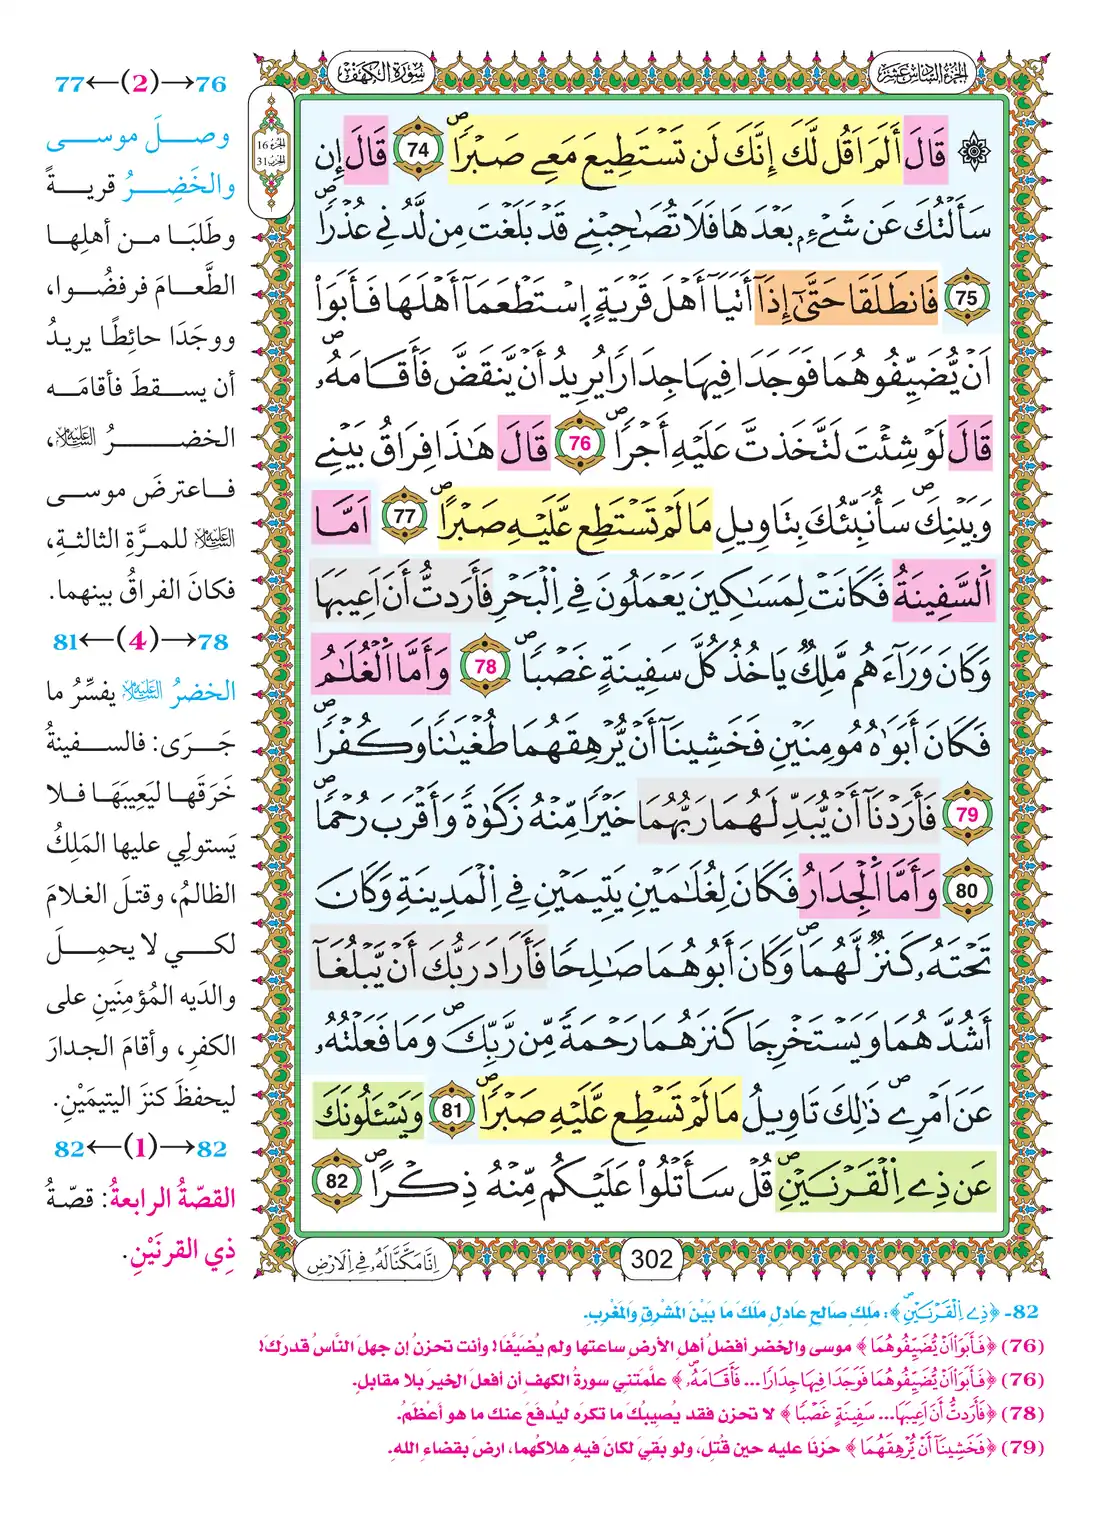 سُورَةُ الكَهْفِ
الجزء السادس عشر
الجزء 16
الحزب 31
قَالَ أَلَمَ اَقُل لَّكَ إِنَّكَ لَن تَسْتَطِيعَ مَعِے صَبْراٗۖ 74 قَالَ إِن
سَأَلْتُكَ عَن شَےْءِۢ بَعْدَهَا فَلَا تُصَٰحِبْنِے قَدْ بَلَغْتَ مِن لَّدُنِے عُذْراٗۖ
75 فَانطَلَقَا حَتَّىٰٓ إِذَآ أَتَيَآ أَهْلَ قَرْيَةٍ اِ۪سْتَطْعَمَآ أَهْلَهَا فَأَبَوَاْ
اَنْ يُّضَيِّفُوهُمَا فَوَجَدَا فِيهَا جِدَاراٗ يُرِيدُ أَنْ يَّنقَضَّ فَأَقَامَهُۥۖ
قَالَ لَوْ شِئْتَ لَتَّخَذتَّ عَلَيْهِ أَجْراٗۖ 76 قَالَ هَٰذَا فِرَاقُ بَيْنِے
وَبَيْنِكَۖ سَأُنَبِّئُكَ بِتَاوِيلِ مَا لَمْ تَسْتَطِع عَّلَيْهِ صَبْراًۖ 77 اَمَّا
اَ۬لسَّفِينَةُ فَكَانَتْ لِمَسَٰكِينَ يَعْمَلُونَ فِے اِ۬لْبَحْرِ فَأَرَدتُّ أَنَ اَعِيبَهَا
وَكَانَ وَرَآءَهُم مَّلِكٞ يَاخُذُ كُلَّ سَفِينَةٍ غَصْباٗۖ 78 وَأَمَّا اَ۬لْغُلَٰمُ
فَكَانَ أَبَوَٰهُ مُومِنَيْنِ فَخَشِينَآ أَنْ يُّرْهِقَهُمَا طُغْيَٰناٗ وَكُفْراٗۖ
79 فَأَرَدْنَآ أَنْ يُّبَدِّلَهُمَا رَبُّهُمَا خَيْراٗ مِّنْهُ زَكَوٰةٗ وَأَقْرَبَ رُحْماٗۖ
80 وَأَمَّا اَ۬لْجِدَارُ فَكَانَ لِغُلَٰمَيْنِ يَتِيمَيْنِ فِے اِ۬لْمَدِينَةِ وَكَانَ
تَحْتَهُۥ كَنزٞ لَّهُمَاۖ وَكَانَ أَبُوهُمَا صَٰلِحاٗ فَأَرَادَ رَبُّكَ أَنْ يَّبْلُغَآ
أَشُدَّهُمَا وَيَسْتَخْرِجَا كَنزَهُمَا رَحْمَةٗ مِّن رَّبِّكَۖ وَمَا فَعَلْتُهُۥ
عَنَ اَمْرِےۖ ذَٰلِكَ تَاوِيلُ مَا لَمْ تَسْطِع عَّلَيْهِ صَبْراٗۖ 81 وَيَسْـَٔلُونَكَ
عَن ذِے اِ۬لْقَرْنَيْنِۖ قُلْ سَأَتْلُواْ عَلَيْكُم مِّنْهُ ذِكْراًۖ 82
302
اِنَّا مَكَّنَّا لَهُۥ فِے اِ۬لَارْضِ
76→(2)←77
وصلَ موسى
والخَضِرُ قريةً
وطَلَبَا من أهلِها
الطَّعامَ فرفضُوا،
ووجَدَا حائِطًا يريدُ
أن يسقطَ فأقامَه
الخضرُ عليه السلام،
فاعترضَ موسى
عليه السلام للمرَّةِ الثالثةِ،
فكانَ الفراقُ بينهما.
78→(4)←81
الخضرُ عليه السلام يفسِّرُ ما
جَرَى: فالسفينةُ
خَرَقَها ليَعِيبَهَا فلا
يَستولِي عليها المَلِكُ
الظالمُ، وقتلَ الغلامَ
لكي لا يحمِلَ
والدَيه المُؤمِنَينِ على
الكفرِ، وأقامَ الجدارَ
ليحفظَ كنزَ اليتيمَيْنِ.
82→(1)←82
القصّةُ الرابعةُ: قصّةُ
ذِي القرنَيْنِ.
82- ﴿ذِے اِ۬لْقَرْنَيْنِۖ﴾: مَلِكٍ صالحٍ عادلٍ مَلَكَ مَا بَيْنَ المَشْرِقِ وَالمَغْرِبِ.
(76) ﴿فَأَبَوَاْ اَنْ يُّضَيِّفُوهُمَا﴾ موسى والخضر أفضلُ أهلِ الأرضِ ساعتها ولم يُضَيَّفَا! وأنت تحزنُ إن جهلَ النَّاسُ قدرَكَ!
(76) ﴿فَأَبَوَاْ اَنْ يُّضَيِّفُوهُمَا فَوَجَدَا فِيهَا جِدَاراٗ... فَأَقَامَهُۥۖ﴾ علَّمَتني سورةُ الكهفِ أن أفعلَ الخيرَ بلا مقابلٍ.
(78) ﴿فَأَرَدتُّ أَنَ اَعِيبَهَا... سَفِينَةٍ غَصْباٗ﴾ لا تحزن فقد يُصيبُكَ ما تكرَه ليُدفَعَ عنكَ ما هو أعْظَمُ.
(79) ﴿فَخَشِينَآ أَنْ يُّرْهِقَهُمَا﴾ حزنَا عليه حين قُتلَ، ولو بقيَ لكانَ فيه هلاكُهما، ارضَ بقضاءِ اللهِ.